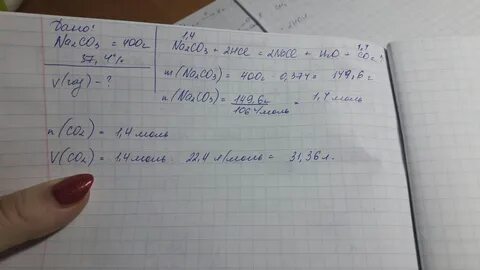 Дано:
Na₂CO₃ = 400г
37,4%
V(газ) - ?
1,4 1,4
Na₂CO₃ + 2HCl = 2NaCl + H₂O + CO₂↑
m(Na₂CO₃) = 400г · 0,374 = 149,6г
n(Na₂CO₃) = 149,6г / 106 г/моль = 1,4 моль
n(CO₂) = 1,4 моль
V(CO₂) = 1,4 моль · 22,4 л/моль = 31,36 л.